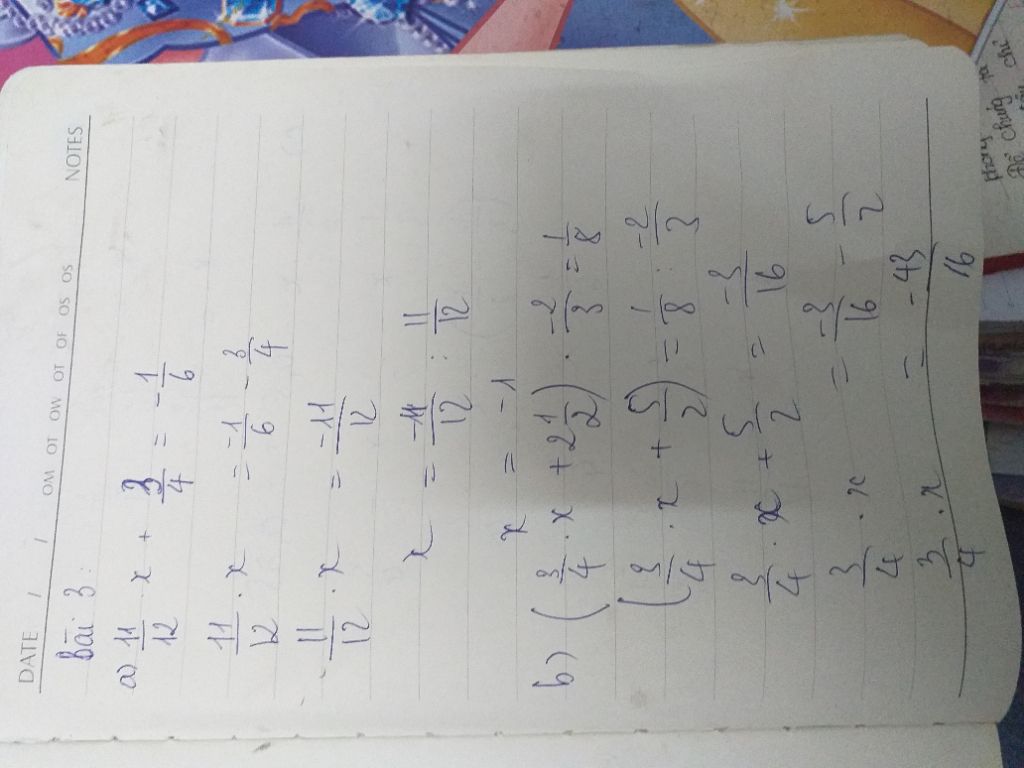 DATE / / OM OT OW OT OF OS OS NOTES
Bài 3:
a) 11/12 . x + 3/4 = -1/6
11/12 . x = -1/6 - 3/4
11/12 . x = -11/12
x = -11/12 : 11/12
x = -1
b) (3/4 . x + 2 1/2) . -2/3 = 1/8
(3/4 . x + 5/2) = 1/8 : -2/3
3/4 . x + 5/2 = -3/16
3/4 . x = -3/16 - 5/2
3/4 . x = -43/16